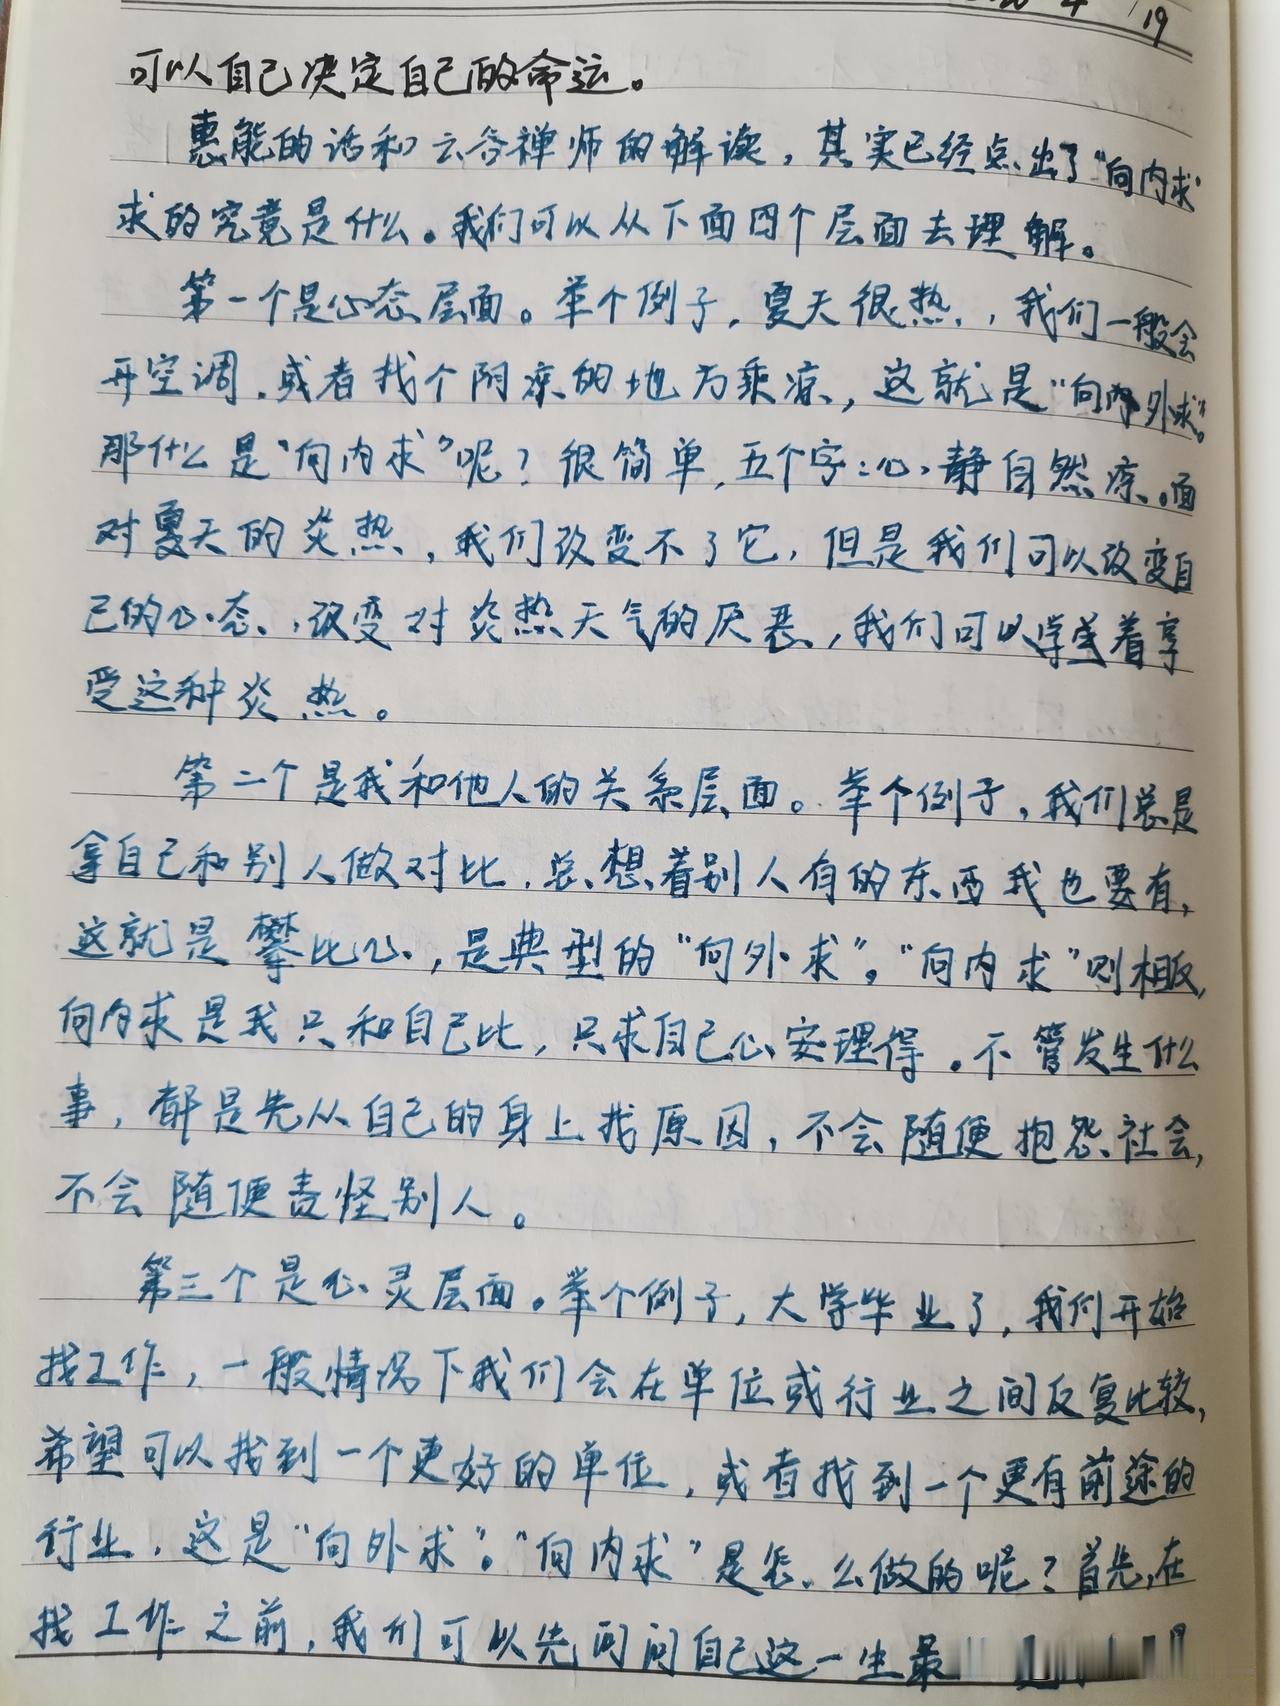 4/19
可以自己决定自己的命运。
惠能的话和云谷禅师的解读，其实已经点出了“向内求”
求的究竟是什么。我们可以从下面四个层面去理解。
第一个是心态层面。举个例子，夏天很热，我们一般会
开空调，或者找个阴凉的地方乘凉，这就是“向外求”。
那什么是“向内求”呢？很简单，五个字：心静自然凉。面
对夏天的炎热，我们改变不了它，但是我们可以改变自
己的心态，改变对炎热天气的厌恶，我们可以学着享
受这种炎热。
第二个是我和他人的关系层面。举个例子，我们总是
拿自己和别人做对比，总想着别人有的东西我也要有，
这就是攀比心，是典型的“向外求”。“向内求”则相反，
向内求是我只和自己比，只求自己心安理得。不管发生什么
事，都是先从自己的身上找原因，不会随便抱怨社会，
不会随便责怪别人。
第三个是心灵层面。举个例子，大学毕业了，我们开始
找工作，一般情况下我们会在单位或行业之间反复比较，
希望可以找到一个更好的单位，或者找到一个更有前途的
行业，这是“向外求”。“向内求”是怎么做的呢？首先，在
找工作之前，我们可以先问问自己这一生最